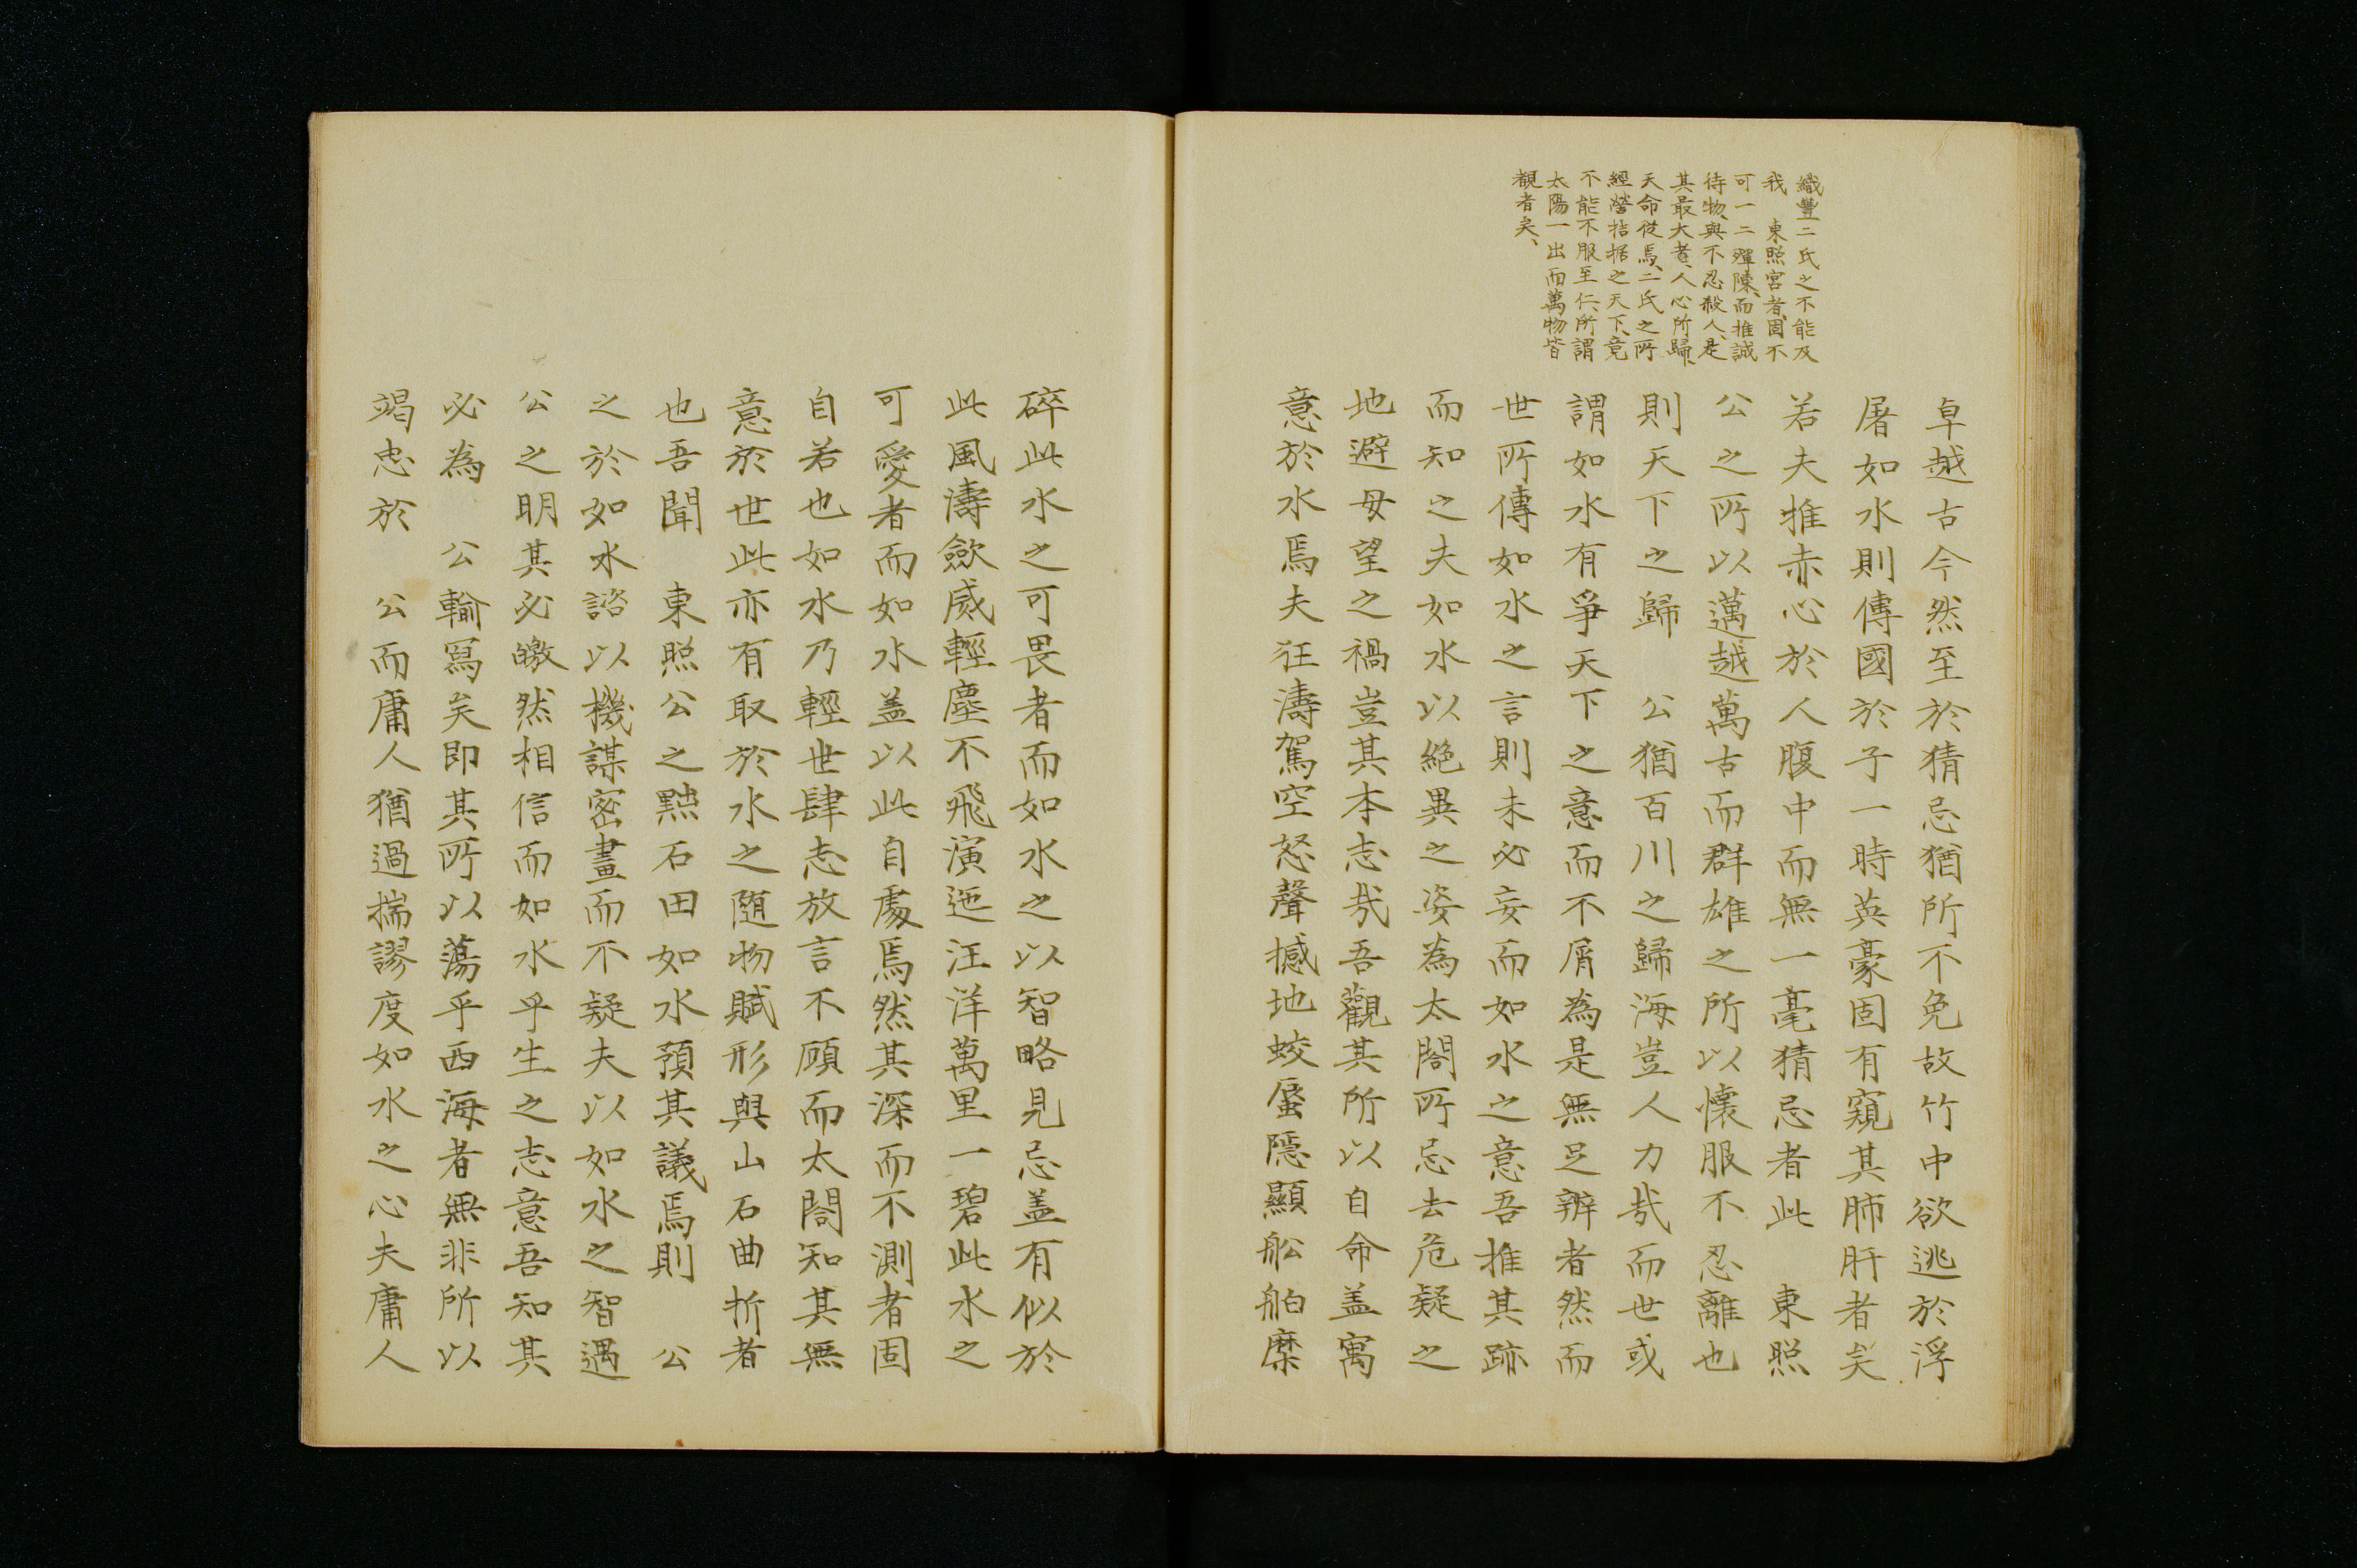 織豐二氏之不能及
我　東照宮者、固不
可一二殫陳、而推誠
待物、與不忍殺人、是
其最大者、人心所歸、
天命從焉、二氏之所
經營拮据之天下、竟
不能不服至仁、所謂
太陽一出而萬物皆
覩者矣、
卓越古今然至於猜忌猶所不免故竹中欲逃於浮
屠如水則傳國於子一時英豪固有窺其肺肝者矣
若夫推赤心於人腹中而無一毫猜忌者此　東照
公之所以邁越萬古而群雄之所以懷服不忍離也
則天下之歸　公猶百川之歸海豈人力哉而世或
謂如水有爭天下之意而不屑為是無足辨者然而
世所傳如水之言則未必妄而如水之意吾推其跡
而知之夫如水以絶異之姿為太閤所忌去危疑之
地避毋望之禍豈其本志哉吾觀其所以自命盖寓
意於水焉夫狂濤駕空怒聲撼地蛟蜃隱顯舩舶糜
碎此水之可畏者而如水之以智略見忌盖有似於
此風濤歛威輕塵不飛演迤汪洋萬里一碧此水之
可愛者而如水盖以此自處焉然其深而不測者固
自若也如水乃輕世肆志放言不顧而太閤知其無
意於世此亦有取於水之随物賦形與山石曲折者
也吾聞　東照公之黜石田如水預其議焉則　公
之於如水諮以機謀密畫而不疑夫以如水之智遇
公之明其必皦然相信而如水乎生之志意吾知其
必為　公輸寫矣即其所以蕩乎西海者無非所以
竭忠於　公而庸人猶過揣謬度如水之心夫庸人